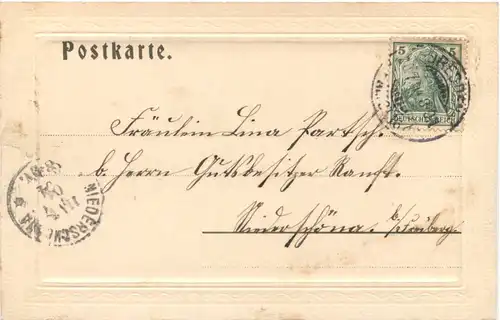 Postkarte.
5 5
Fräulein Lina Partsch.
b. Herrn Gutsbesitzer Ranft.
Niederschöna. b/Freiberg.
NIEDERSCHÖNA